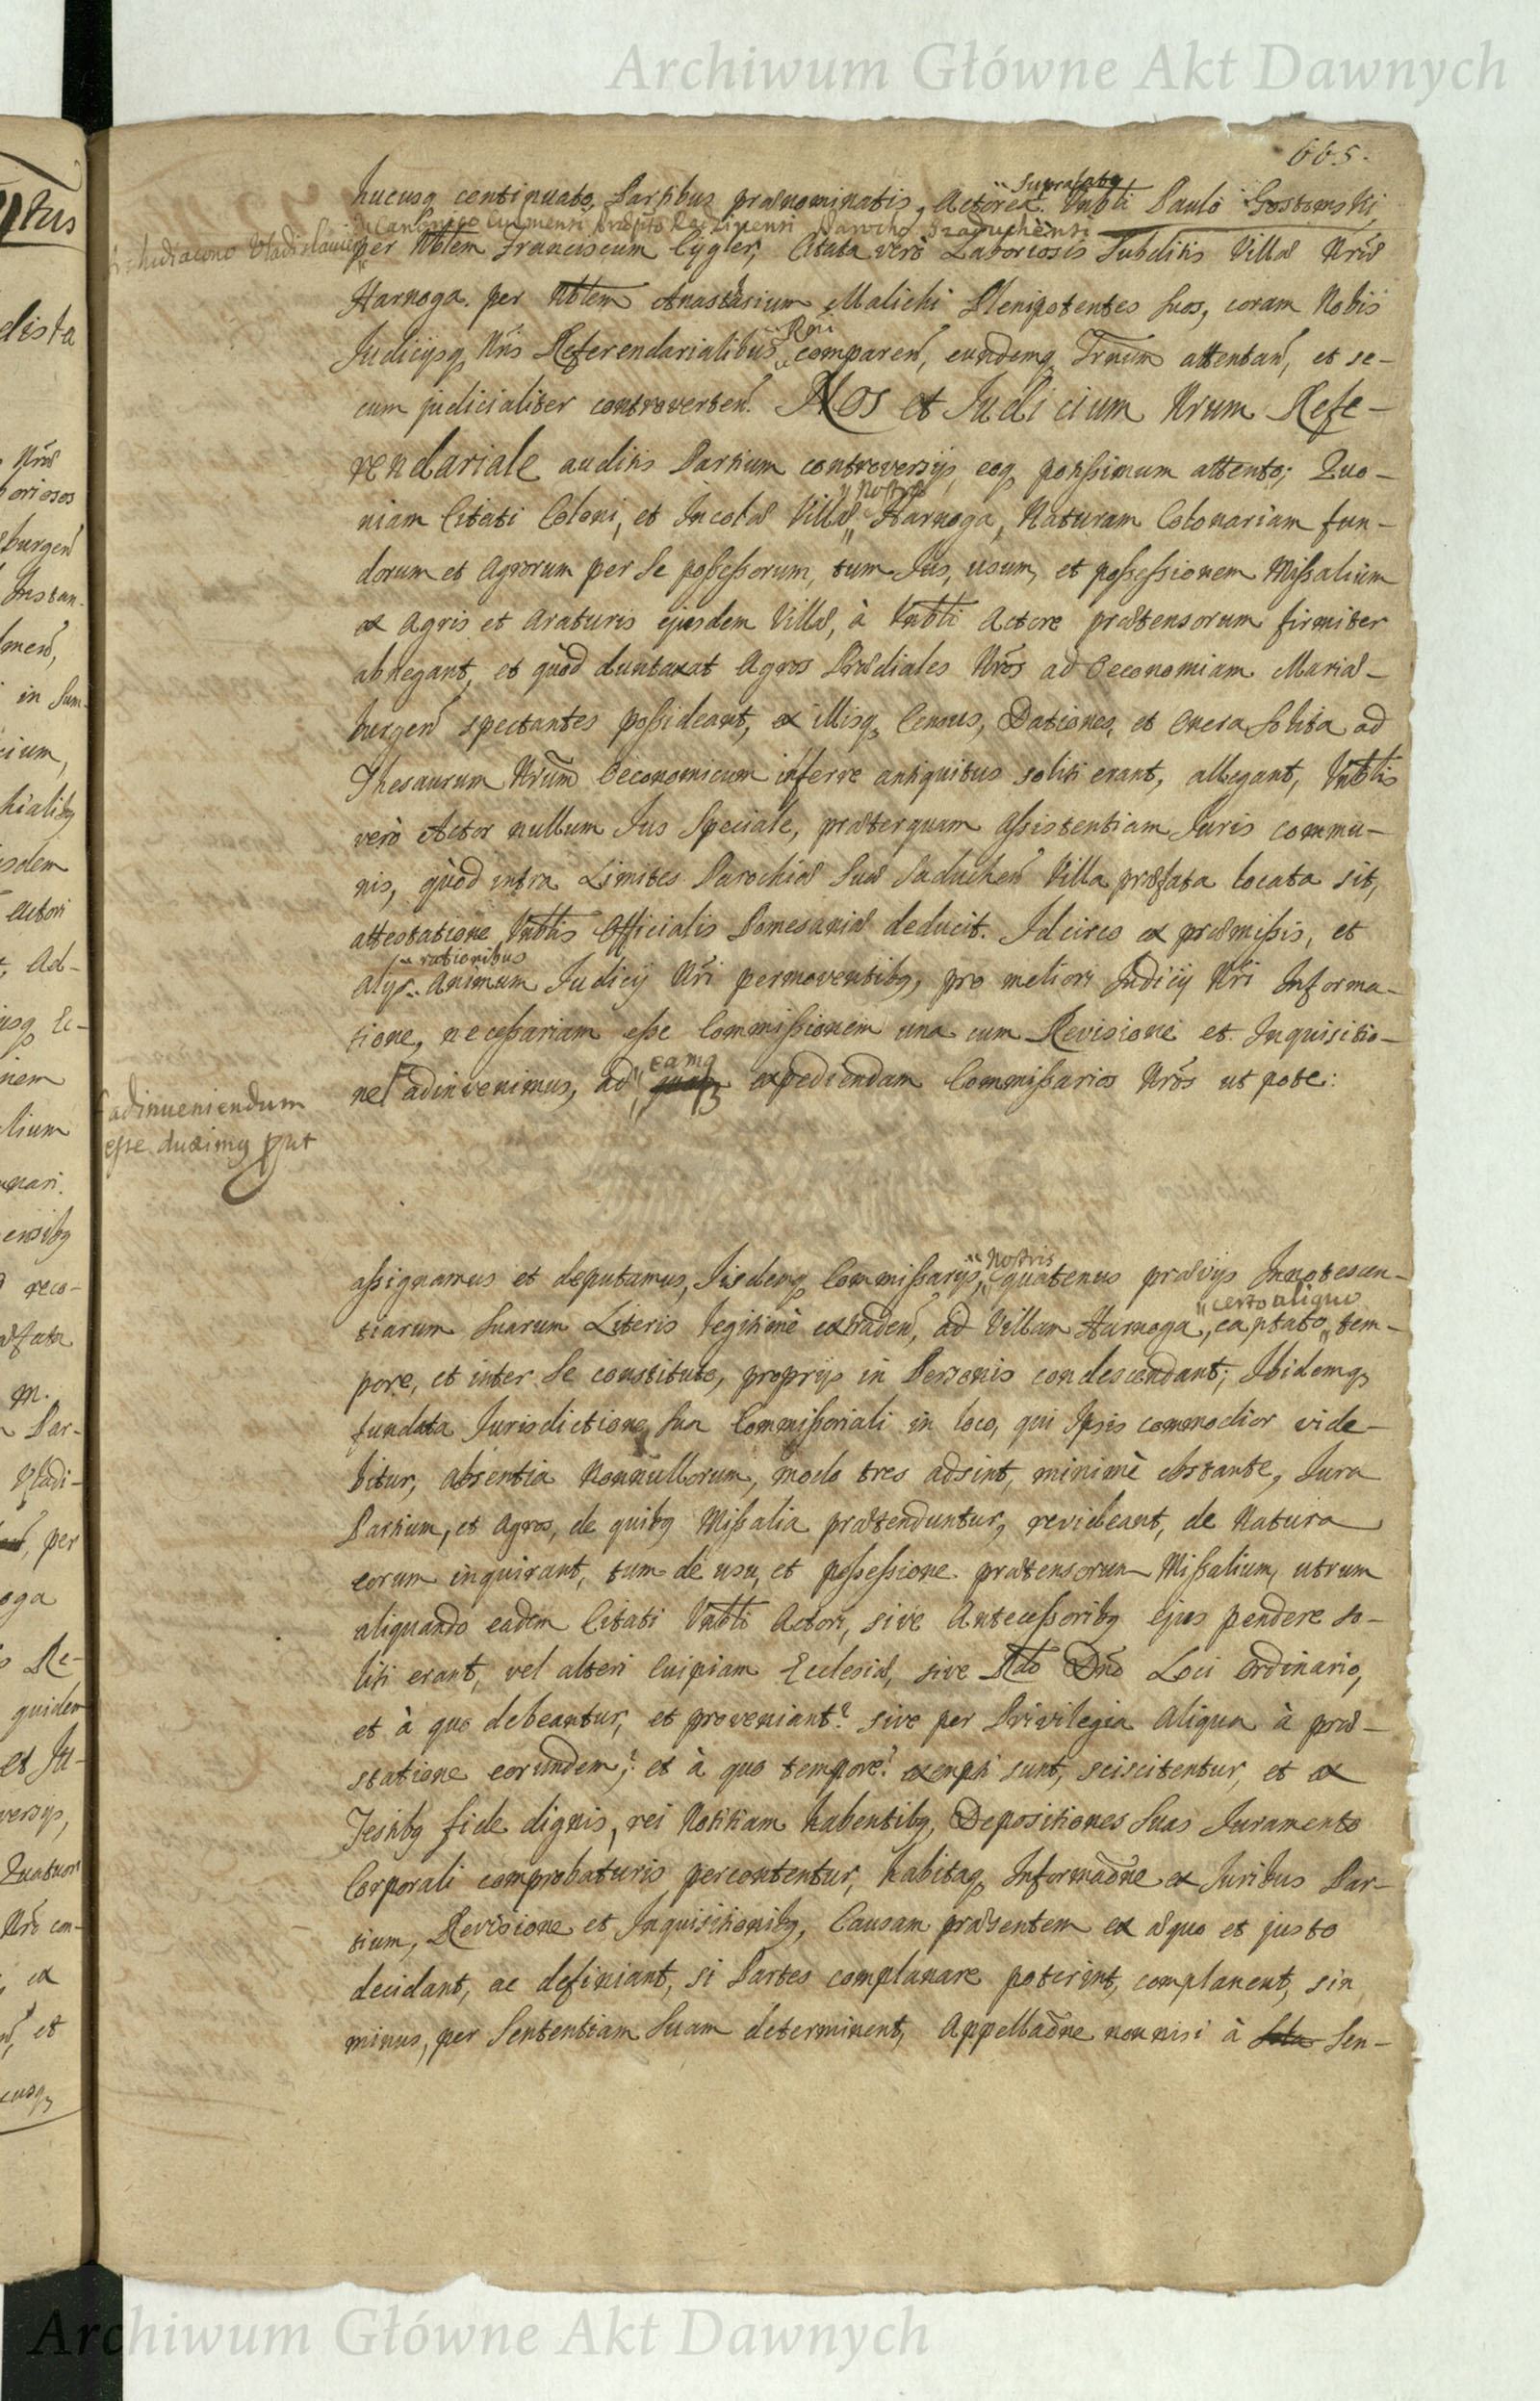 Archiwum Główne Akt Dawnych
665.
supralato
hucusq continuato, Partibus prænominatis, Actorea Vnbli Paulo Gostomski,
Canonico Culmensi Præpto Radzinensi Parocho Szaduchensi
Archidiacono Vladislavien
per Nblem Franciscum Cygler, Citata verò Laboriosis Subditis Villæ Nræ
Harnoga per Nblem Anastasium Malicki Plenipotentes suos, coram Nobis
Judicijsq Nris Referendarialibus comparen, eundemq Trnum attentan, et se-
cum judicialiter controverten. Nos et Judicium Nrum Refe-
rendariale auditis Partium controversijs, eoq potissimum attento; Quo-
nostræ
niam Citati Coloni, et Incolæ Villæ Harnoga, Naturam Colonariam fun-
dorum et Agrorum per se possessorum, tum Jus, usum, et possessionem Missalium
ex Agris et Araturis ejusdem Villæ, à Vnbli Actore prætensorum firmiter
abnegant, et quòd duntaxat Agros Prædiales Nros ad Oeconomiam Mariæ-
burgen spectantes possideant, ex illisq Census, Dationes, et Onera solita ad
Thesaurum Nrum Oeconomicum inferre antiquitus soliti erant, allegant, Vnblis
verò Actor nullum Jus Speciale, præterquam Assistentiam Juris commu-
nis, quòd intra Limites Parochiæ Suæ Saduchen Villa præfata locata sit,
attestatione Vnblis Officialis Pomesaniæ deducit. Idcirco ex præmissis, et
rationibus
alijs Animum Judicij Nri permoventibq, pro meliori Judicij Nri Informa-
tione, necessariam esse Commissionem una cum Revisione et Inquisitio-
eamq
ne adinvenimus, ad quam expediendam Commissarios Nros ut pote:
adinueniendum
esse duximq put
nostris
assignamus et deputamus, Iisdemq Commissarijs, quatenus prævijs Innotescen-
certo aliquo
tiarum Suarum Literis legitimè extraden, ad Villam Harnoga, captato tem-
pore, et inter se constituto, proprijs in Personis condescendant; Ibidemq
fundata Jurisdictione sua Commissoriali in loco, qui Ipsis commodior vide-
bitur, absentia Nonnullorum, modo tres adsint, minimè obstante, Jura
Partium, et Agros, de quibq Missalia prætenduntur, revideant, de Natura
eorum inquirant, tum de usu, et possessione prætensorum Missalium, utrum
aliquando eadem Citati Vnbli Actori, sive Antecessoribq ejus pendere so-
liti erant, vel alteri cuipiam Ecclesiæ, sive Rdo Dno Loci Ordinario,
et à quo debeantur, et proveniant? sive per Privilegia aliqua à præ-
statione eorundem? et à quo tempore? exempti sunt, sciscitentur, et ex
Testibq fide dignis, rei Notitiam habentibq, Depositiones suas Juramento
Corporali comprobaturis percontentur, habitaq Informaōne ex Juribus Par-
tium, Revisione et Inquisitionibq, Causam præsentem ex æquo et justo
decidant, ac definiant, si Partes complanare poterint, complanent, sin
minus, per Sententiam Suam determinent, Appellaōne nonnisi à Sen-
Archiwum Główne Akt Dawnych